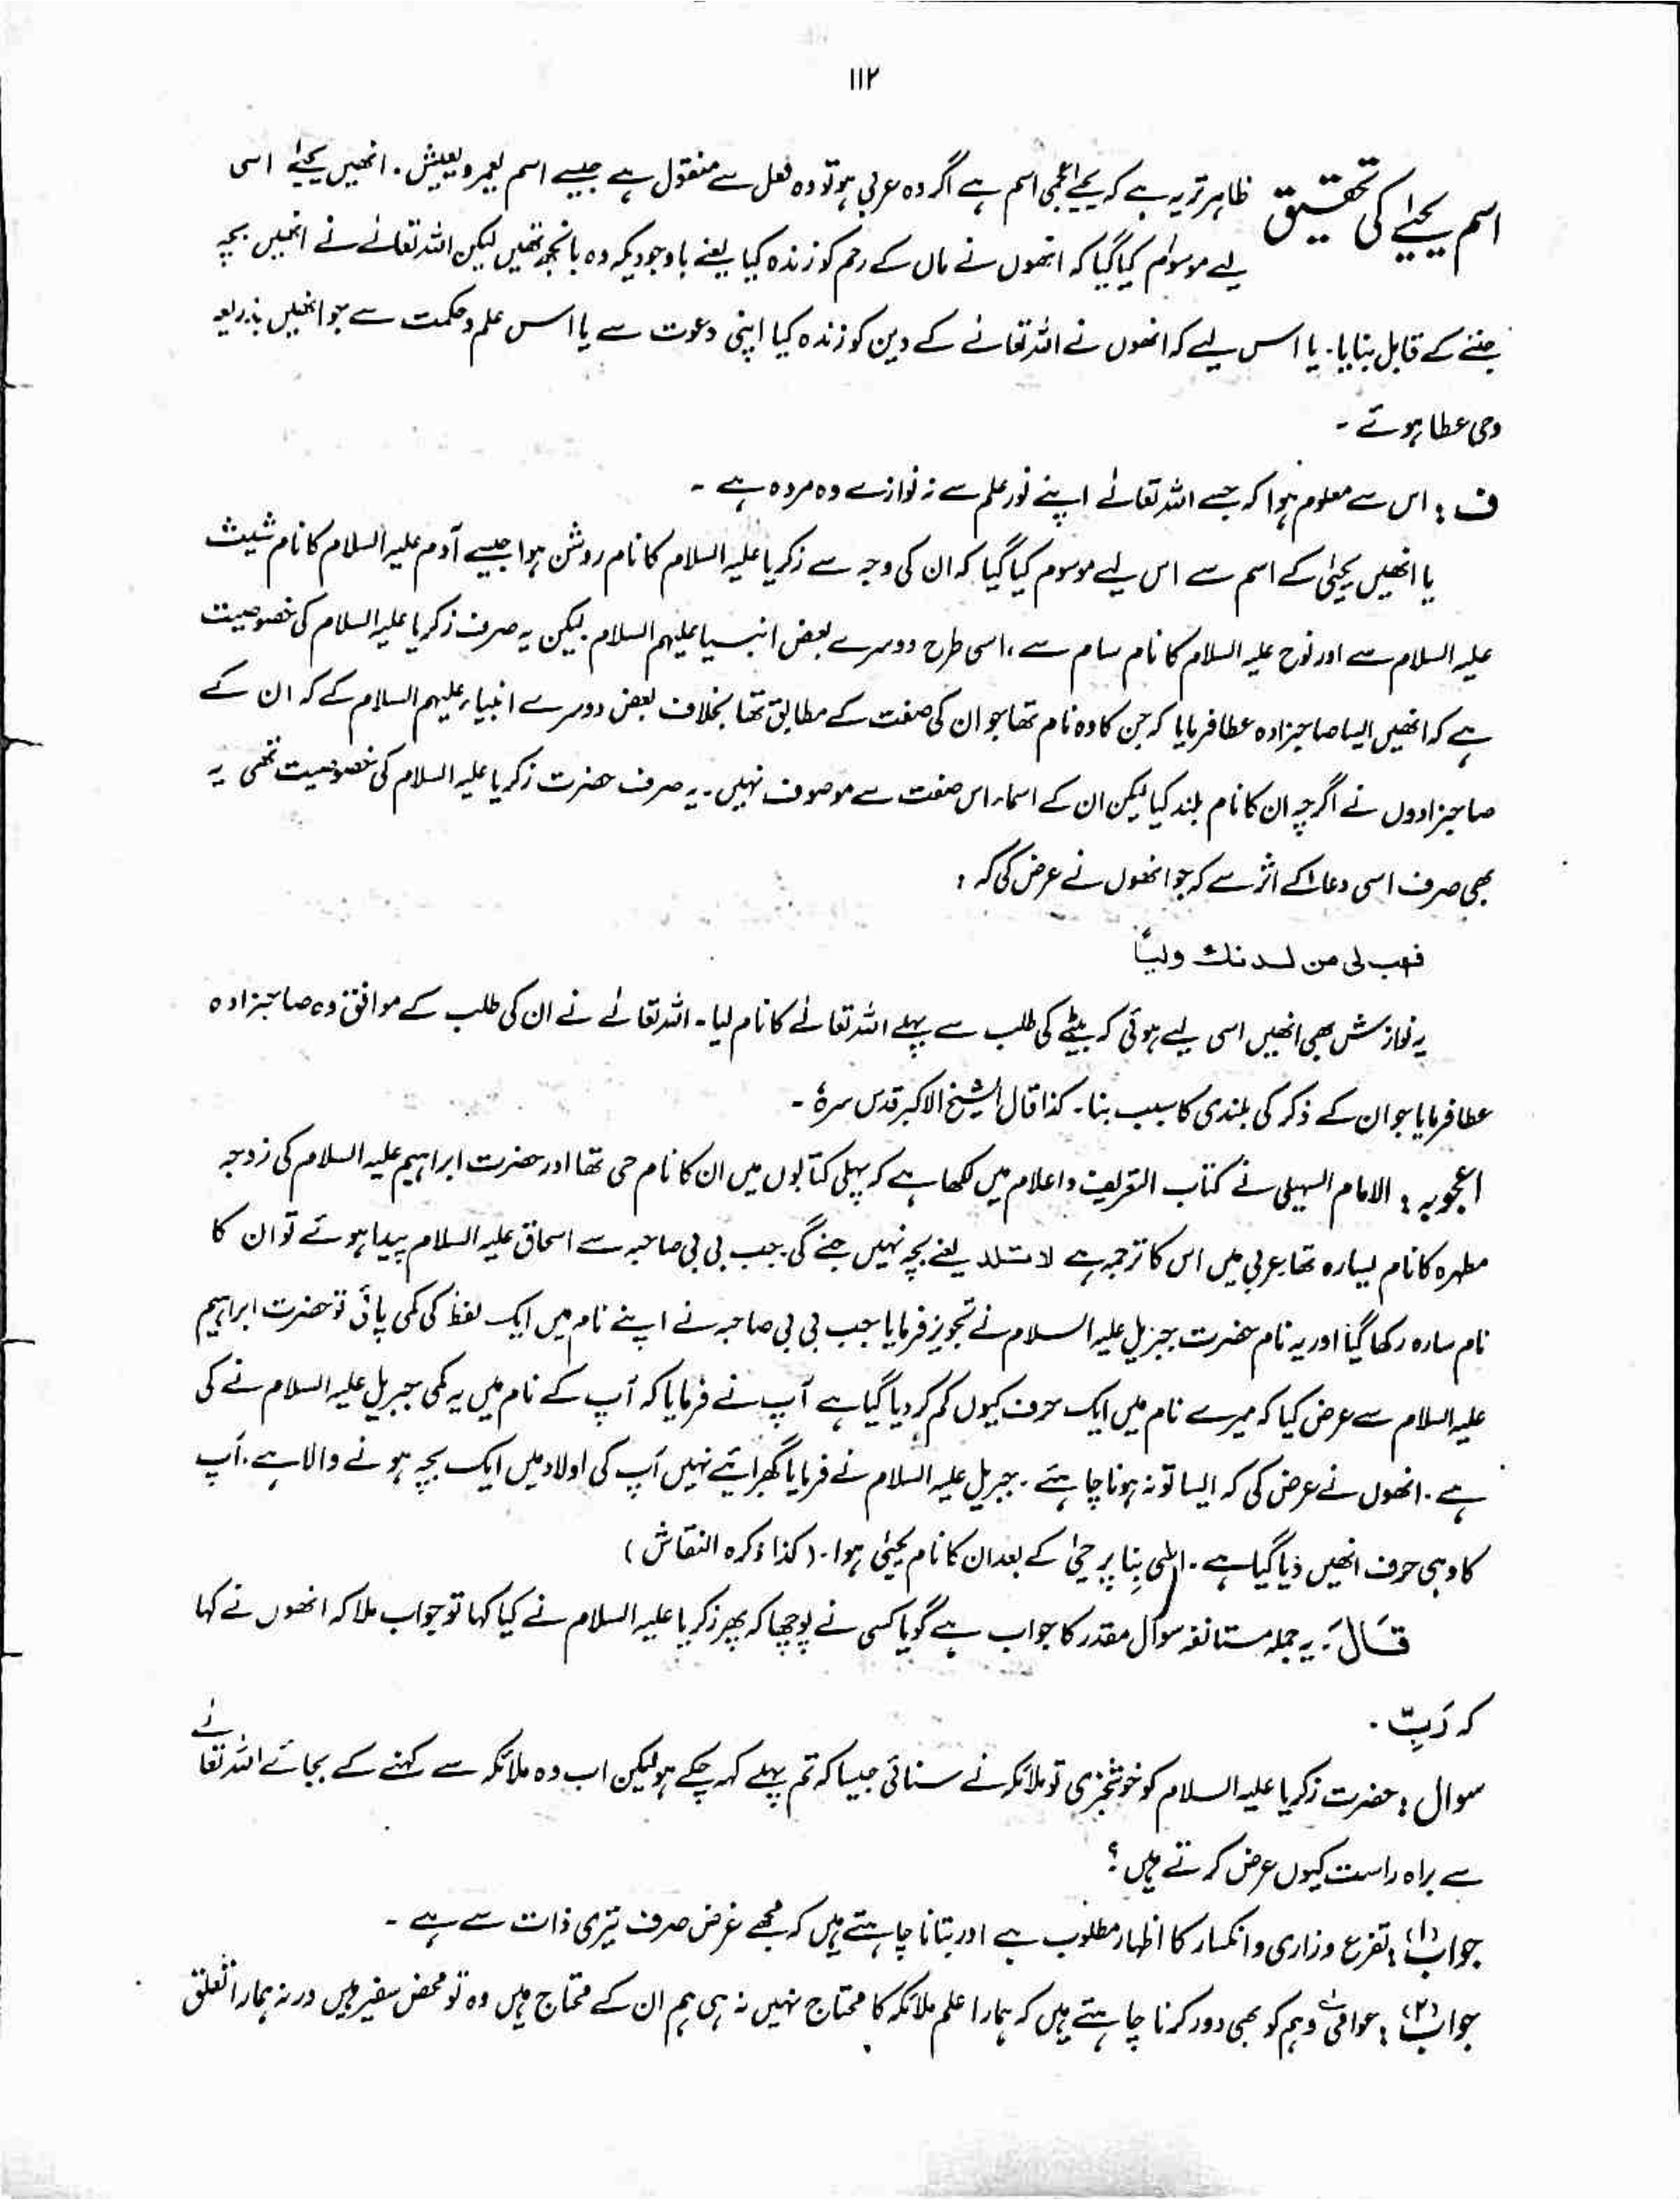 ۱۱۲
اسم یحییٰ کی تحقیق ظاہر تو یہ ہے کہ یحییٰ عجمی اسم ہے اگر وہ عربی ہو تو وہ فعل سے منقول ہے جیسے اسم یعمر و یعیش۔ انھیں یحییٰ اسی
لیے موسوم کیا گیا کہ انھوں نے ماں کے رحم کو زندہ کیا یعنے باوجودیکہ وہ بانجھ تھیں لیکن اللہ تعالےٰ نے انھیں بچہ
جننے کے قابل بنایا۔ یا اس لیے کہ انھوں نے اللہ تعالےٰ کے دین کو زندہ کیا اپنی دعوت سے یا اس علم و حکمت سے جو انھیں بذریعہ
وحی عطا ہوئے ۔
ف : اس سے معلوم ہوا کہ جسے اللہ تعالےٰ اپنے نور علم سے نہ نوازے وہ مردہ ہے ۔
یا انھیں یحییٰ کے اسم سے اس لیے موسوم کیا گیا کہ ان کی وجہ سے زکریا علیہ السلام کا نام روشن ہوا جیسے آدم علیہ السلام کا نام شیث
علیہ السلام سے اور نوح علیہ السلام کا نام سام سے ، اسی طرح دوسرے بعض انبیا علیہم السلام۔ لیکن یہ صرف زکریا علیہ السلام کی خصوصیت
ہے کہ انھیں ایسا صاحبزادہ عطا فرمایا کہ جن کا وہ نام تھا جو ان کی صفت کے مطابق تھا بخلاف بعض دوسرے انبیاء علیہم السلام کے کہ ان کے
صاحبزادوں نے اگرچہ ان کا نام بلند کیا لیکن ان کے اسماء اس صفت سے موصوف نہیں۔ یہ صرف حضرت زکریا علیہ السلام کی خصوصیت تھی یہ
بھی صرف اسی دعا کے اثر سے کہ جو انھوں نے عرض کی کہ :
فهب لی من لدنك ولیًا
یہ نوازش بھی انھیں اسی لیے ہوئی کہ بیٹے کی طلب سے پہلے اللہ تعالےٰ کا نام لیا۔ اللہ تعالےٰ نے ان کی طلب کے موافق وہ صاحبزادہ
عطا فرمایا جو ان کے ذکر کی بلندی کا سبب بنا۔ کذا قال الشیخ الاکبر قدس سرہٗ ۔
اعجوبہ : الامام السہیلی نے کتاب التعریف و اعلام میں لکھا ہے کہ پہلی کتابوں میں ان کا نام حی تھا اور حضرت ابراہیم علیہ السلام کی زوجہ
مطہرہ کا نام یسارہ تھا عربی میں اس کا ترجمہ ہے لا تلد یعنے بچہ نہیں جنے گی۔ جب بی بی صاحبہ سے اسحاق علیہ السلام پیدا ہوئے تو ان کا
نام سارہ رکھا گیا اور یہ نام حضرت جبریل علیہ السلام نے تجویز فرمایا جب بی بی صاحبہ نے اپنے نام میں ایک لفظ کی کمی پائی تو حضرت ابراہیم
علیہ السلام سے عرض کیا کہ میرے نام میں ایک حرف کیوں کم کر دیا گیا ہے آپ نے فرمایا کہ آپ کے نام میں یہ کمی جبریل علیہ السلام نے کی
ہے۔ انھوں نے عرض کی کہ ایسا تو نہ ہونا چاہئے ۔ جبریل علیہ السلام نے فرمایا گھبرائیے نہیں آپ کی اولاد میں ایک بچہ ہونے والا ہے۔ آپ
کا وہی حرف انھیں دیا گیا ہے۔ اسی بنا پر حیٰ کے بعد ان کا نام یحییٰ ہوا۔ (کذا ذکرہ النقاش)
قَالَ۔ یہ جملہ مستانفہ سوال مقدر کا جواب ہے گویا کسی نے پوچھا کہ پھر زکریا علیہ السلام نے کیا کہا تو جواب ملا کہ انھوں نے کہا
کہ رَبِّ ۔
سوال : حضرت زکریا علیہ السلام کو خوشخبری تو ملائکہ نے سنائی جیسا کہ تم پہلے کہہ چکے ہو لیکن اب وہ ملائکہ سے کہنے کے بجائے اللہ تعالےٰ
سے براہ راست کیوں عرض کرتے ہیں ؟
جواب (۱) : تضرع و زاری و انکسار کا اظہار مطلوب ہے اور بتانا چاہتے ہیں کہ مجھے غرض صرف تیری ذات سے ہے ۔
جواب (۲) : عوامی وہم کو بھی دور کرنا چاہتے ہیں کہ ہمارا علم ملائکہ کا محتاج نہیں نہ ہی ہم ان کے محتاج ہیں وہ تو محض سفیر ہیں ورنہ ہمارا تعلق